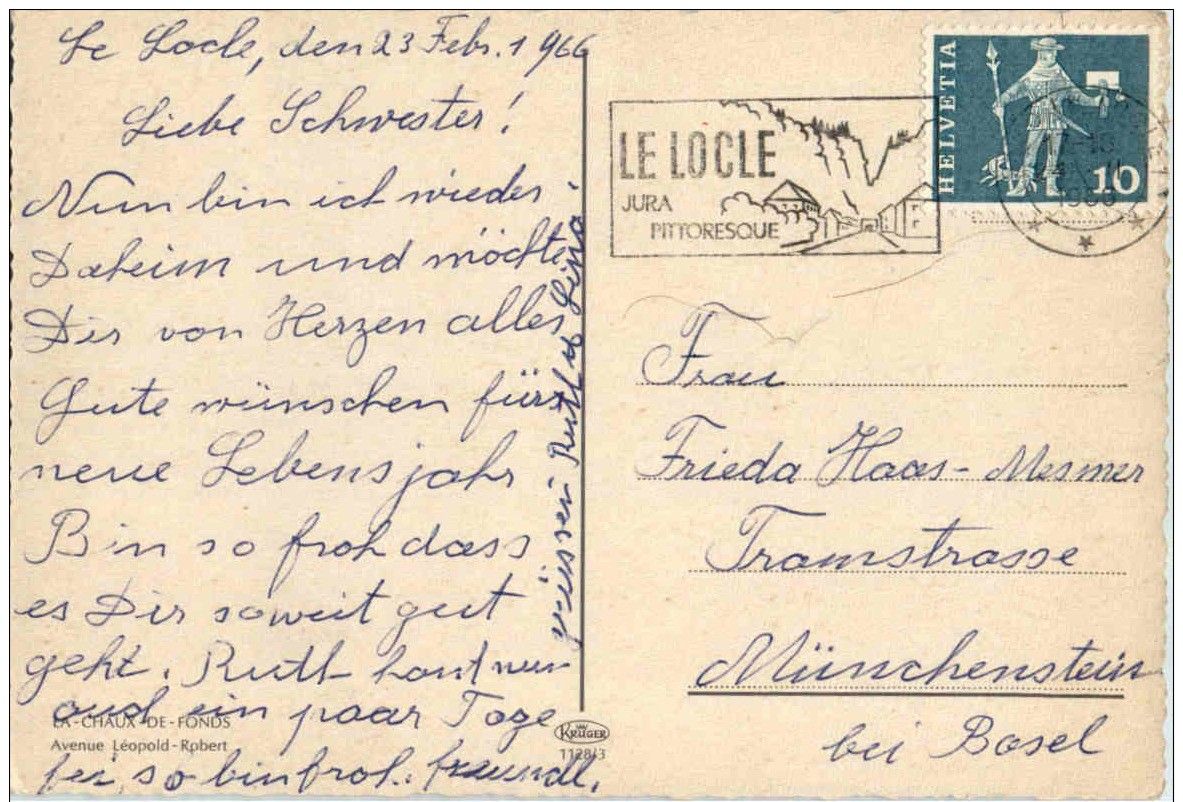 Le Locle, den 23 Febr. 1966
Liebe Schwester!
Nun bin ich wieder
Daheim und möchte
Dir von Herzen alles
Gute wünschen fürs
neue Lebensjahr
Bin so froh dass
es Dir soweit gut
geht. Ruth hat nun
auch ein paar Tage
frei, so bin froh. freundl.
grüssen Ruth u Lina
LA-CHAUX-DE-FONDS
Avenue Léopold-Robert
KRÜGER
1128/3
LE LOCLE
JURA
PITTORESQUE
HELVETIA
10
1966
Frau
Frieda Haas-Mesmer
Tramstrasse
Münchenstein
bei Basel